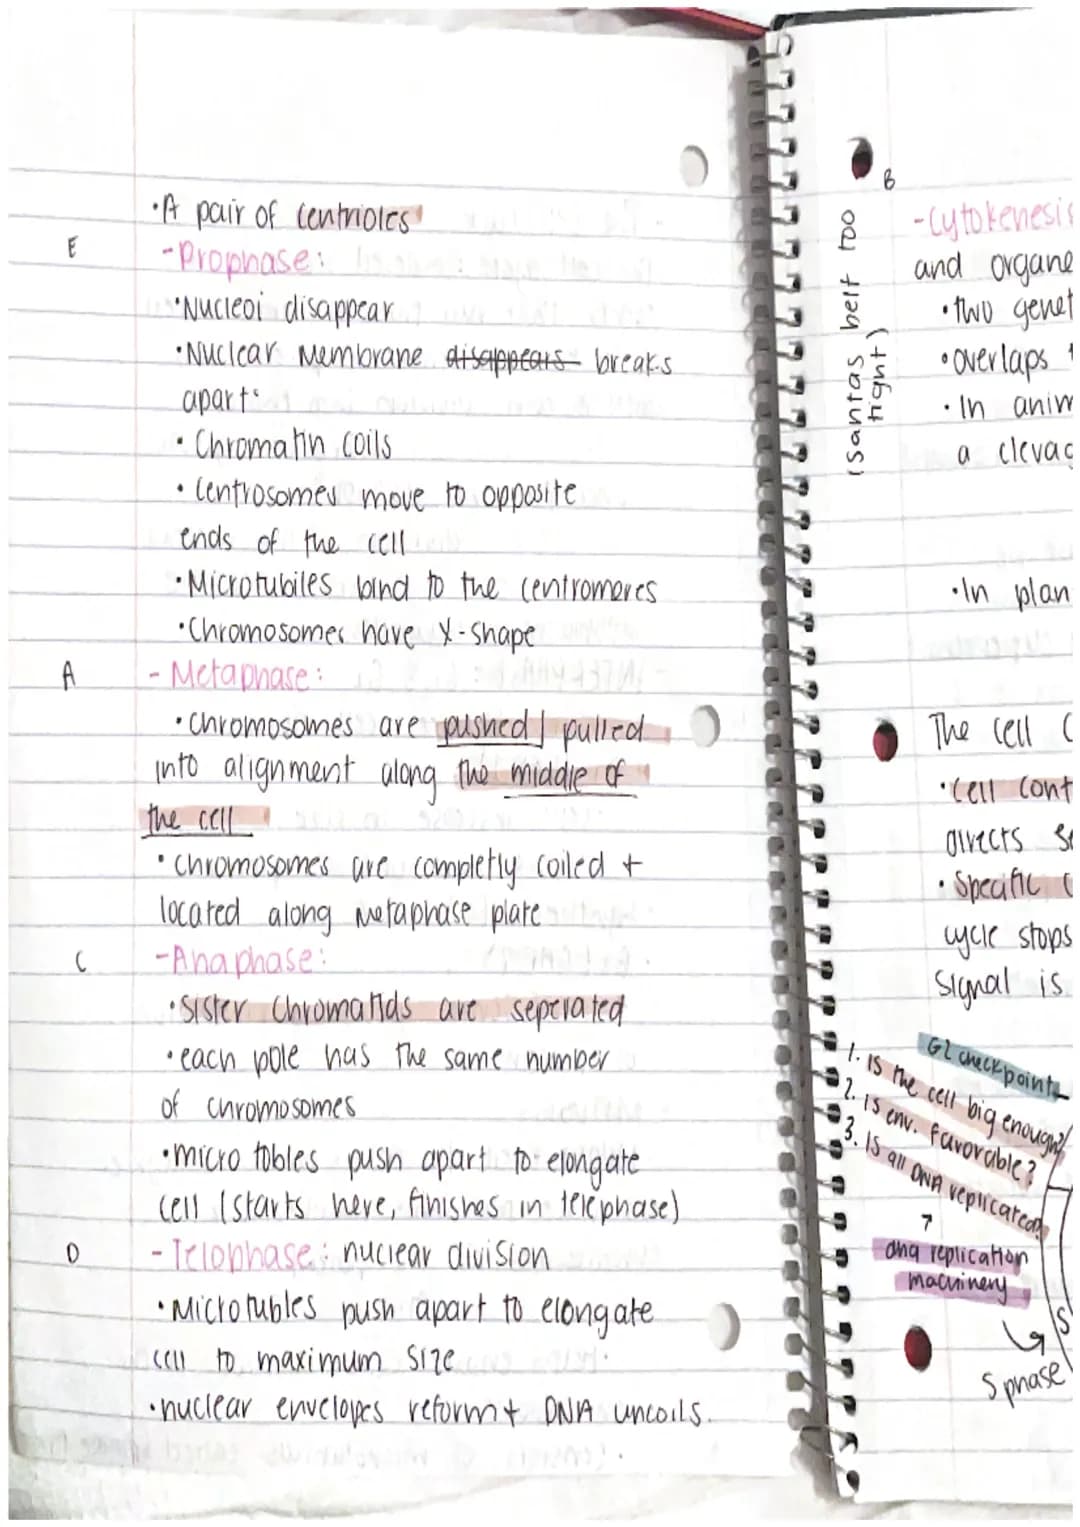 •A pair of centrioles
E
-Prophase:
•Nucleoi disappear
•Nuclear Membrane disappears breaks
apart
• Chromatin coils
• Centrosomes move to opposite
ends of the cell
•Microtubiles bind to the centromeres
•Chromosomes have X-Shape
A
- Metaphase:
•Chromosomes are pushed/pulled
into alignment along the middle of
the cell
• chromosomes are completly coiled +
located along metaphase plate
C
-Anaphase:
•Sister Chromatids are seperated
•each pole has the same number
of chromosomes
•micro tobles push apart to elongate
cell (starts here, finishes in telephase)
D
- Telophase: nuclear division
•Microtubles push apart to elongate
cell to maximum size
•nuclear envelopes reform + DNA uncoils.
B
(santas belt too
tight)
-Cytokenesis
and organe
•two genet
•overlaps
•In anim
a clevag
•In plan
The cell C
•Cell Cont
directs se
•Specific C
cycle stops
signal is
G2 checkpoint
1. Is the cell big enough?
2. Is env. favorable?
3. Is all DNA replicated?
dna replication
machinery
S
S phase